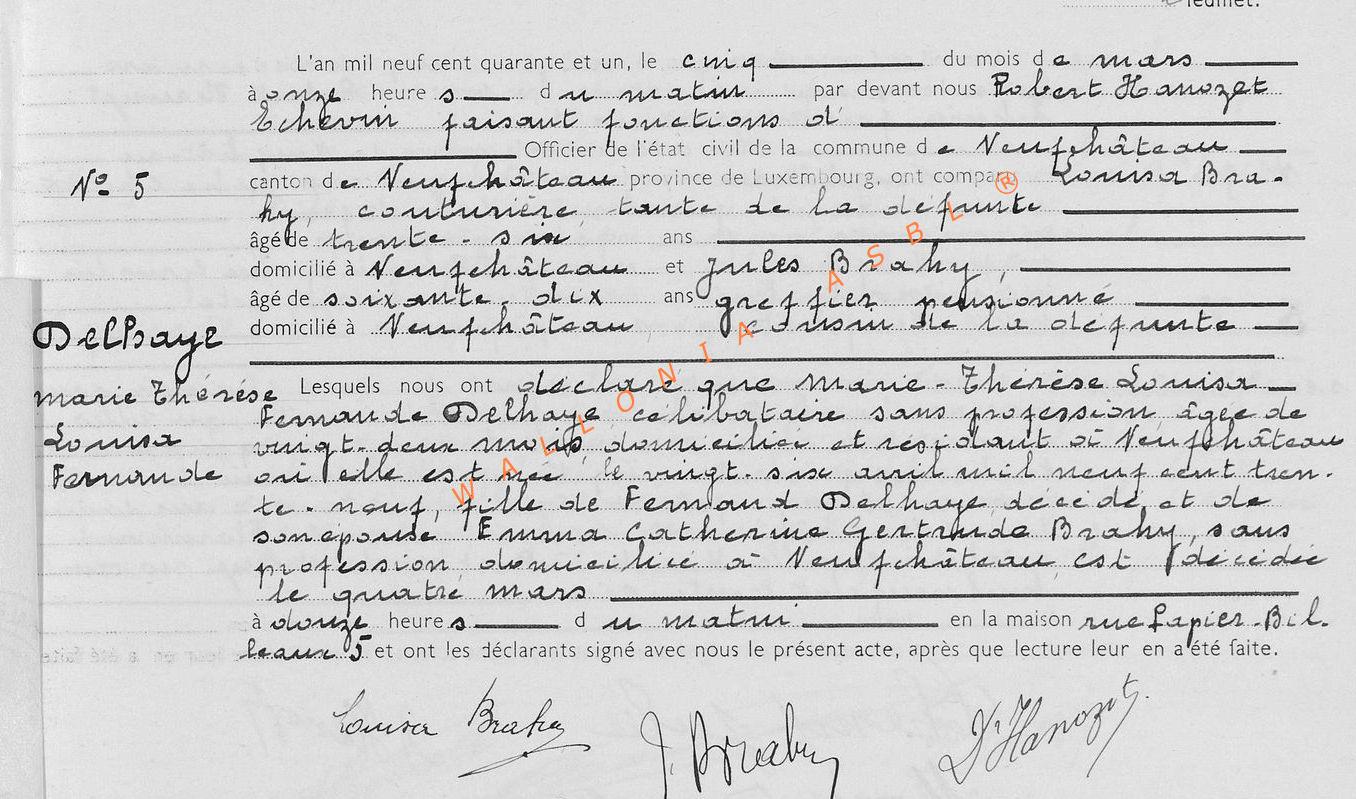 feuillet.
L'an mil neuf cent quarante et un, le cinq du mois de mars
à onze heures du matin par devant nous Robert Hanozet
Echevin faisant fonctions d'
Officier de l'état civil de la commune de Neufchâteau
N° 5
canton de Neufchâteau province de Luxembourg, ont compar Louisa Bra-
hy, couturière, tante de la defunte
âgé de trente-six ans
domicilié à Neufchâteau et Jules Brahy,
âgé de soixante-dix ans greffier pensionné
domicilié à Neufchâteau cousin de la défunte
Delhaye
Marie Thérèse
Louisa
Fernande
Lesquels nous ont déclaré que Marie-Thérèse Louisa
Fernande Delhaye célibataire sans profession âgée de
vingt-deux mois domiciliée et résidant à Neufchâteau
où elle est née le vingt-six avril mil neuf cent tren-
te-neuf, fille de Fernand Delhaye décédé et de
son épouse Emma Catherine Gertrude Brahy, sans
profession domiciliée à Neufchâteau est décédée
le quatre mars
à douze heures du matin en la maison rue Lapier-Bil-
leaux 5 et ont les déclarants signé avec nous le présent acte, après que lecture leur en a été faite.
Louisa Brahy
J. Brahy
Dr Hanozet
WALLONIA ASBL ®